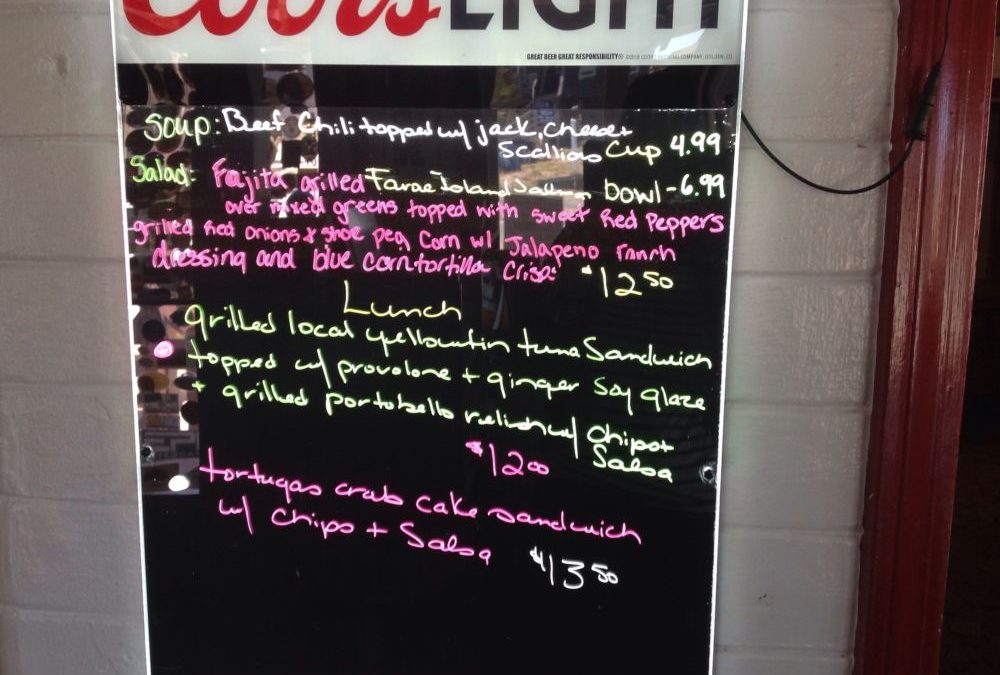 Coors LIGHT
GREAT BEER GREAT RESPONSIBILITY®
Soup: Beef Chili topped w/ jack, cheese +
Scallions Cup 4.99
Salad: Fajita grilled Faroe Island Salmon bowl - 6.99
over mixed greens topped with sweet Red Peppers
grilled Red onions & shoe peg Corn w/ Jalapeno ranch
dressing and blue corn tortilla Crisps $12 50
Lunch
grilled local yellowfin tuna Sandwich
topped w/ provolone + ginger Soy glaze
+ grilled portobello relish w/ Chips +
Salsa
$12 00
tortugas crab cake sandwich
w/ Chips + Salsa $13 50